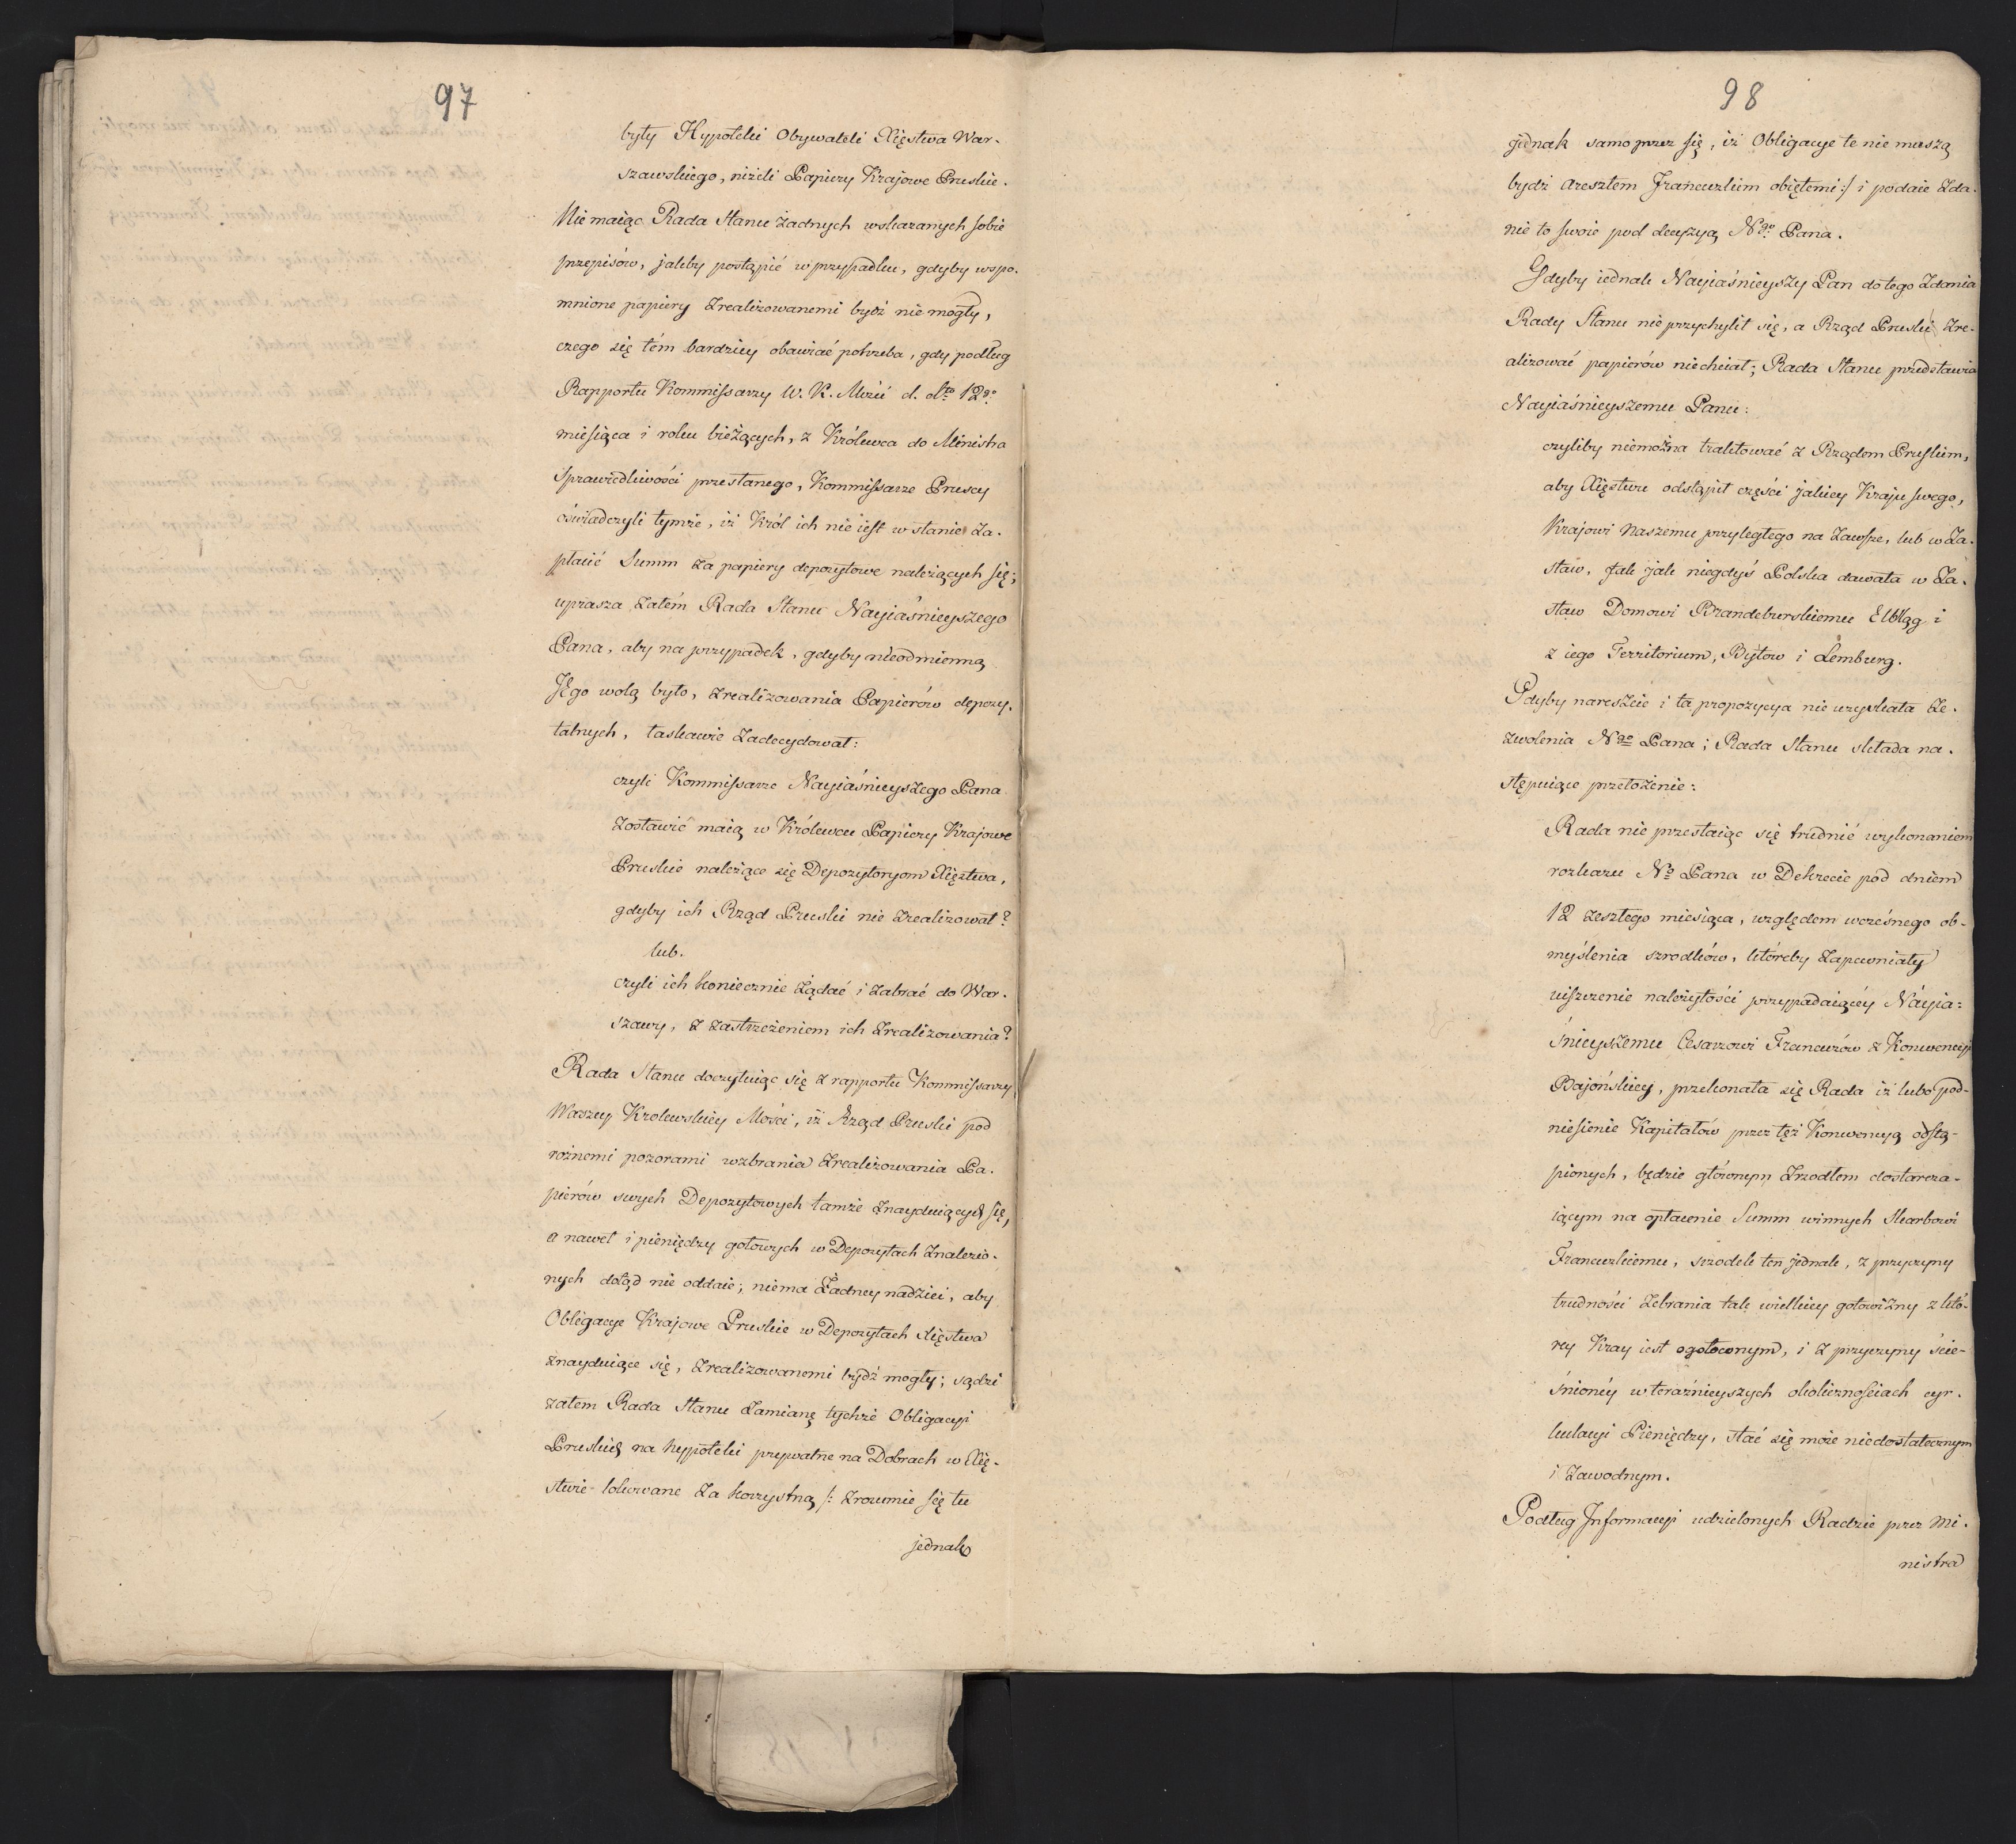 97
były Hypoteki Obywateli Xięstwa War-
szawskiego, niżeli Papiery Krajowe Pruskie.
Nie maiąc Rada Stanu żadnych wskazanych sobie
przepisów, jakby postąpić w przypadku, gdyby wspo-
mnione papiery zrealizowanemi bydź nie mogły,
czego się tém bardziey obawiać potrzeba, gdy podług
Rapportu Kommissarzy W. K. Mści d. dto 12go
miesiąca i roku bieżących, z Królewca do Ministra
Sprawiedliwości przesłanego, Kommissarze Pruscy
oświadczyli tymże, iż Król ich nie iest w stanie za-
płacić Summ za papiery depozytowe należących się;
uprasza zatém Rada Stanu Nayiaśnieyszego
Pana, aby na przypadek, gdyby nieodmienną
Jego wolą było, zrealizowania Papierów depozy-
talnych, łaskawie zadecydował:
czyli Kommissarze Nayiaśnieyszego Pana
zostawić maią w Królewcu Papiery Krajowe
Pruskie należące się Depozytoryom Xięztwa,
gdyby ich Rząd Pruski nie zrealizował?
lub.
czyli ich koniecznie żądać i zabrać do War-
szawy, z zastrzeżeniem ich zrealizowania?
Rada Stanu doczytuiąc się z rapportu Kommissarzy
Waszey Krolewskiey Mości, iż Rząd Pruski pod
rożnemi pozorami wzbrania zrealizowania Pa-
pierów swych Depozytowych tamże znayduiących się,
a nawet i pieniędzy gotowych w Depozytach znalezio-
nych dotąd nie oddaie; niema żadney nadziei, aby
Obligacye Krajowe Pruskie w Depozytach Xięstwa
znayduiące się, zrealizowanemi bydź mogły; sądzi
zatem Rada Stanu zamianę tychże Obligacyi
Pruskich na hypoteki prywatne na Dobrach w Xię-
stwie lokowane za korzystną /: zrozumie się tu
jednak
98
jednak samo przez się, iż Obligacye te nie muszą
bydź aresztem Francuzkim obiętemi :/ i podaie zda-
nie to swoie pod decyzyą Ngo Pana.
Gdyby iednak Nayiaśnieyszy Pan do tego zdania
Rady Stanu nie przychylił się, a Rząd Pruski zre-
alizować papierów niechciał; Rada Stanu przedstawia
Nayiaśnieyszemu Panu:
czyliby niemożna traktować z Rządem Pruskim,
aby Xięztwu odstąpił części jakiey Kraju swego,
Krajowi naszemu przyległego na zawsze, lub w Za-
staw, jak jak niegdyś Polska dawała w Za-
staw Domowi Brandeburskiemu Elbląg i
z iego Territorium, Bytow i Lemburg.
Gdyby nareszcie i ta propozycya nie uzyskała ze-
zwolenia Ngo Pana; Rada Stanu składa na-
stępuiące przełożenie:
Rada nie przestaiąc się trudnić wykonaniem
rozkazu No Pana w Dekrecie pod dniem
12 zeszłego miesiąca, względem wcześnego ob-
myślenia szrodków, któreby zapewniały
uiszczenie należytości przypadaiącéy Náyia:
śnieyszemu Cesarzowi Francuzów z Konwencyi
Bajońskiey, przekonała się Rada iż lubo pod-
niesienie Kapitałów przez tęż Konwencyą odstą-
pionych, będzie głównym źrzodłem dostarcza-
iącym na opłacenie Summ winnych Skarbowi
Francuzkiemu, szrodek ten jednak, z przyczyny
trudności zebrania tak wielkiey gotowizny z któ-
rey Kray iest ogołoconym, i z przyczyny ście-
śnionéy w teraźnieyszych okolicznościach cyr-
kulacyi Pieniędzy, stać się może niedostatecznym
i zawodnym.
Podług Informacyi udzielonych Radzie przez Mi-
nistra